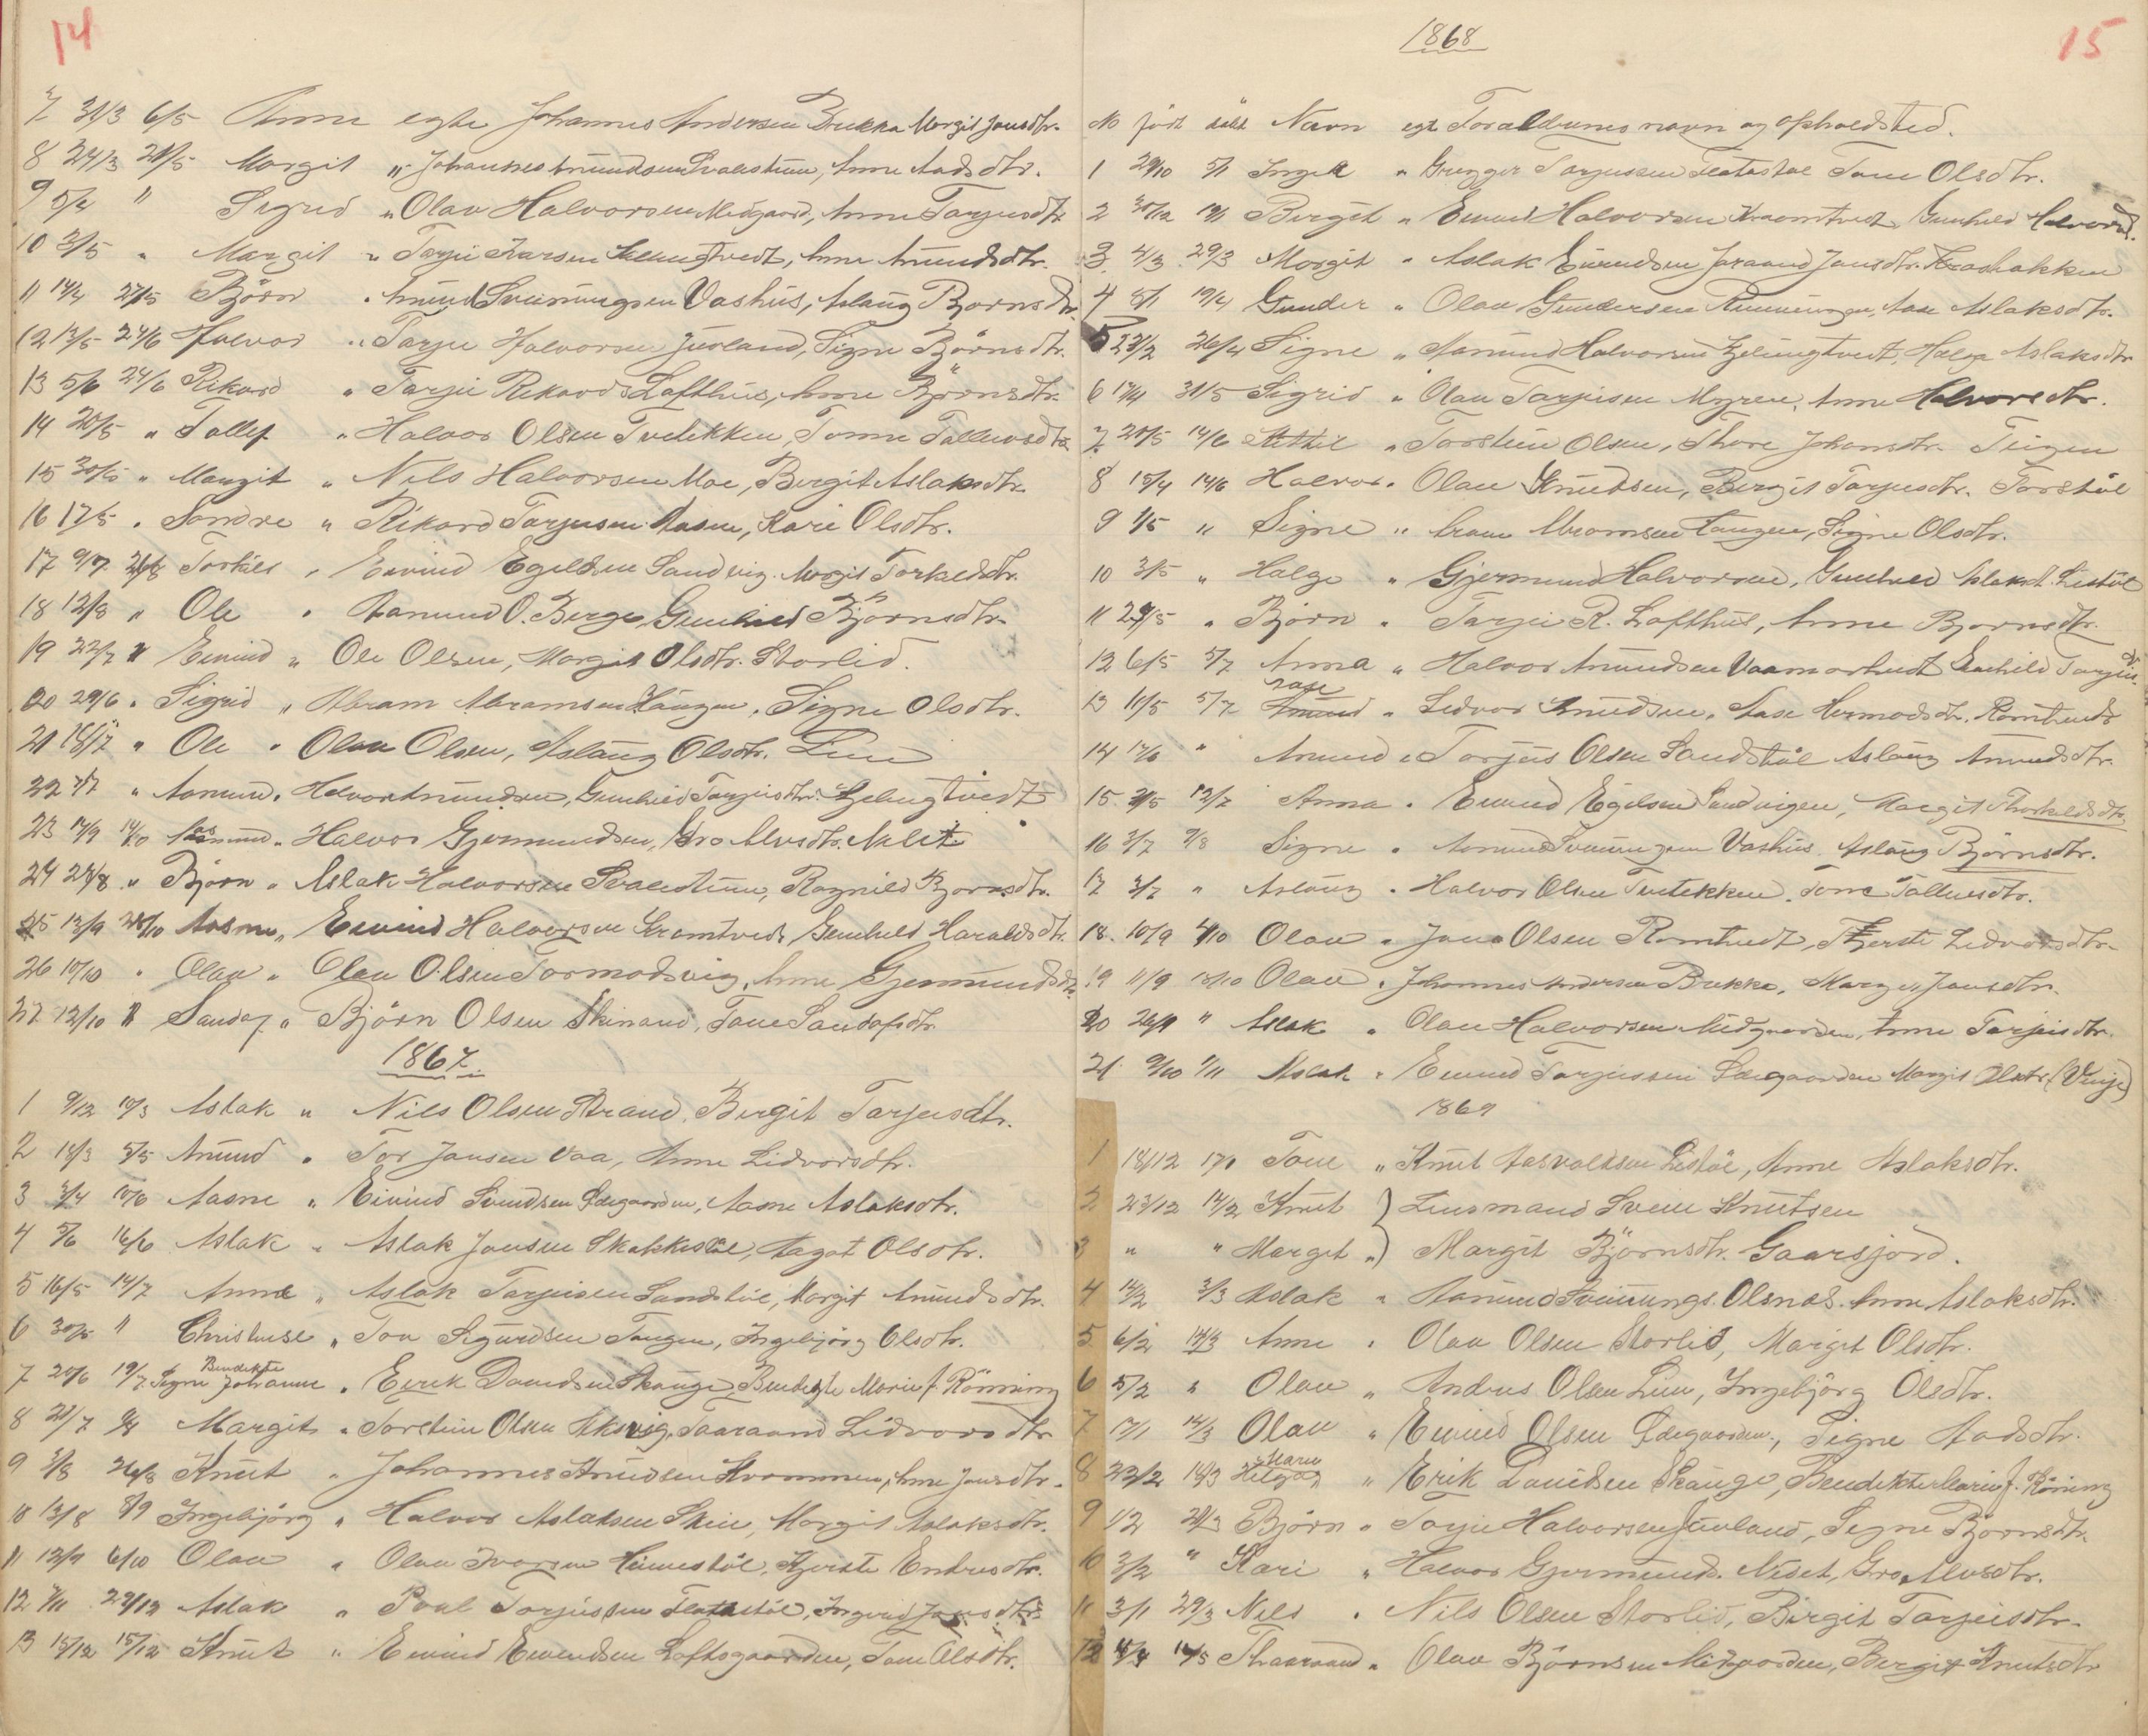 14
7 31/3 6/5 Anne egte Johannes Andersen Brekka Margit Jonsdtr.
8 24/3 21/5 Margit " Johannes Amundsen Svalestuen, Anne Aadsdtr.
9 5/4 " Sigrid " Olav Halvorsen Midgaard, Anne Tarjeisdtr
10 3/5 " Margit " Tarjei Ivarsen Selungtvedt, Anne Amundsdtr.
11 14/4 27/5 Björn " Amund Sveinungsen Vashus, Aslaug Bjornsdtr.
12 13/5 24/6 Halvor " Tarje Halvorsen Juvland, Signe Björnsdtr.
13 5/6 24/6 Rikard " Tarjei Rikards Lofthus, Anne Björnsdtr.
14 20/5 " Tallef " Halvor Olsen Tvetekken, Tonne Tallevsdtr
15 30/5 " Margit " Nils Halvorsen Moe, Bergit Aslaksdtr.
16 17/5 " Sondre " Rikard Tarjusen Aasen, Kari Olsdtr.
17 9/7 26/8 Torkild " Eivind Egildsen Sandvig. Margit Torkeldsdtr.
18 12/8 " Ole " Aamund O. Berge, Gunhild Björnsdtr.
19 22/7 " Eivind " Ole Olsen, Margit Olsdtr. Storlid.
20 29/6 " Sigrid " Abram Abramsen Haugen, Signe Olsdtr.
21 18/7 " Ole " Olav Olsen, Aslaug Olsdtr. Lien
22 " Aamund " Halvor Amundsen, Gunhild Tarjeisdtr. Selungtvedt
23 14/9 14/10 Aasmund " Halvor Gjermundsen, Gro Alvsdtr. Neset
24 28/8 " Björn " Aslak Halvorsen Svalestuen, Ragnild Bjornsdtr.
25 13/9 28/10 Aasne " Eivind Halvorsen Kromtvedt Gunhild Haraldsdtr.
26 10/10 " Olav " Olav Olsen Tormodsvig, Anne Gjermundsdtr.
27 12/10 " Sandof " Björn Olsen Skinand, Tone Sandofsdtr.
1867.
1 9/12 10/3 Aslak " Nils Olsen Strand, Bergit Tarjeisdtr.
2 18/3 5/5 Amund " Tor Jonsen Vaa, Anne Lidvorsdtr.
3 3/4 10/6 Aasne " Eivind Svendsen Ødegaarden, Aasne Aslaksdtr.
4 5/6 16/6 Aslak " Aslak Jonsen Skakkestöl, Aagot Olsdtr.
5 16/5 14/7 Anne " Aslak Tarjeisen Sandstöl, Margit Amundsdtr.
6 30/5 " Christense " Tov Sigurdsen Tangen, Ingebjörg Olsdtr.
Bendikte
7 20/6 19/7 Signe Johanne " Eirik Davidsen Skauge, Bendegte Marie f. Rönning
8 21/7 Margit " Torstein Olsen Aksvig, Taaraand Lidvorsdtr
9 3/8 26/8 Knut " Johannes Knudsen Hvammen, Anne Jonsdtr.
10 13/8 8/9 Ingebjörg " Halvor Aslaksen Skeie, Margit Aslaksdtr.
11 12/9 6/10 Olav " Olav Ivarsen Heimestöl, Kjerste Endresdtr.
12 29/12 Aslak " Poul Tarjussen Flatestöl, Ingerid Jonsdtr.
13 15/12 15/12 Knut " Eivind Eivendsen Loftsgaarden, Tone Olsdtr.
1868
15
No födt döbt Navn egt Foraldrenes navn og opholdsted.
1 29/10 5/1 Inger " Gregger Tarjussen Flatestöl Tone Olsdtr.
2 30/12 19/1 Bergit " Eivind Halvorsen Kraomtvedt Gunhild Halvorsd.
3 4/3 29/3 Margit " Aslak Eivindsen Joraand Jonsdtr. Kraabakken
4 8/1 19/4 Gunder " Olav Gundersen Rumningen, Aase Aslaksdtr.
5 23/2 26/4 Signe " Aamund Halvorsen Selungtvedt, Helge Aslaksdtr
6 17/4 31/5 Sigrid " Olav Tarjeisen Myren, Anne Halvorsdtr.
7 20/5 14/6 Kittil " Torstein Olsen, Thore Johansdtr. Teigen
8 15/4 14/6 Halvor " Olav Knudsen, Bergit Tarjusdtr. Torstöl
9 1/5 " Signe " Abram Abramsen Haugen, Signe Olsdtr.
10 3/5 " Helge " Gjermund Halvorsen, Gunhild Aslaksd. Listöl
11 29/5 " Björn " Tarjei R. Lofthus, Anne Bjornsdtr.
12 6/5 5/7 Anna " Halvor Amundsen Vaamartvedt Gunhild Tarjeisdtr.
Aase
13 11/5 5/7 Amund " Lidvor Knudsen, Aase Hermodsdtr. Romtvedt
14 17/6 " Amund " Torjus Olsen Sandstöl Aslaug Amundsdtr.
15 31/5 12/7 Anna " Eivind Egilsen Sandvigen, Margit Thorkeldsdtr.
16 3/7 9/8 Signe " Aamund Sveinungsen Vashus Aslaug Björnsdtr.
17 3/7 " Aslaug " Halvor Olsen Tvetekken, Tone Tallevsdtr.
18 10/9 4/10 Olav " Jon Olsen Romtvedt, Kjerste Lidvorsdtr.
19 11/9 18/10 Olav " Johannes Andersen Brekke, Margit Jonsdtr.
20 26/9 " Aslak " Olav Halvorsen Midgaarden, Anne Tarjeisdtr.
21 9/10 1/11 Aslak " Eivind Tarjussen Ødegaarden Margit Olsdtr. (Vinje)
1869
1 18/12 17/1 Tone " Knut Aasvaldsen Listöl, Anne Aslaksdtr.
2 23/12 14/2 Knut } Lensmand Svein Knutsen
3 " " Marget " } Margit Björnsdtr. Gaarsjord.
4 14/2 3/3 Aslak " Aamund Sveinungs. Olsnes. Anne Aslaksdtr.
5 6/2 14/3 Anne " Olav Olsen Storlid, Margit Olsdtr.
6 5/2 " Olav " Andres Olsen Lien, Ingebjörg Olsdtr.
7 17/1 14/3 Olav " Eivind Olsen Ødegaarden, Signe Aadsdtr.
Maren
8 23/2 18/3 Helga " Erik Davidsen Skauge, Bendikte Marie f. Röning
9 1/2 21/3 Björn " Tarjei Halvorsen Juvland, Signe Björnsdtr.
10 3/2 " Kari " Halvor Gjermunds. Neset, Gro Alvsdtr.
11 3/1 29/3 Nils " Nils Olsen Storlid, Birgit Tarjeisdtr.
12 4/4 16/5 Thaaraand " Olav Björnsen Midgaarden, Bergit Knutsdtr